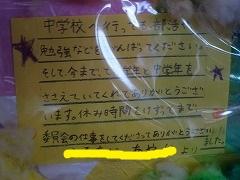 中学校へ行っても部活
勉強などをがんばってください。
そして、今まで1学年と中学年を
ささえていてくれてありがとうござ
います。休み時間をけずってまで
委員会の仕事をしてくださってありがとうござい
ました。
より